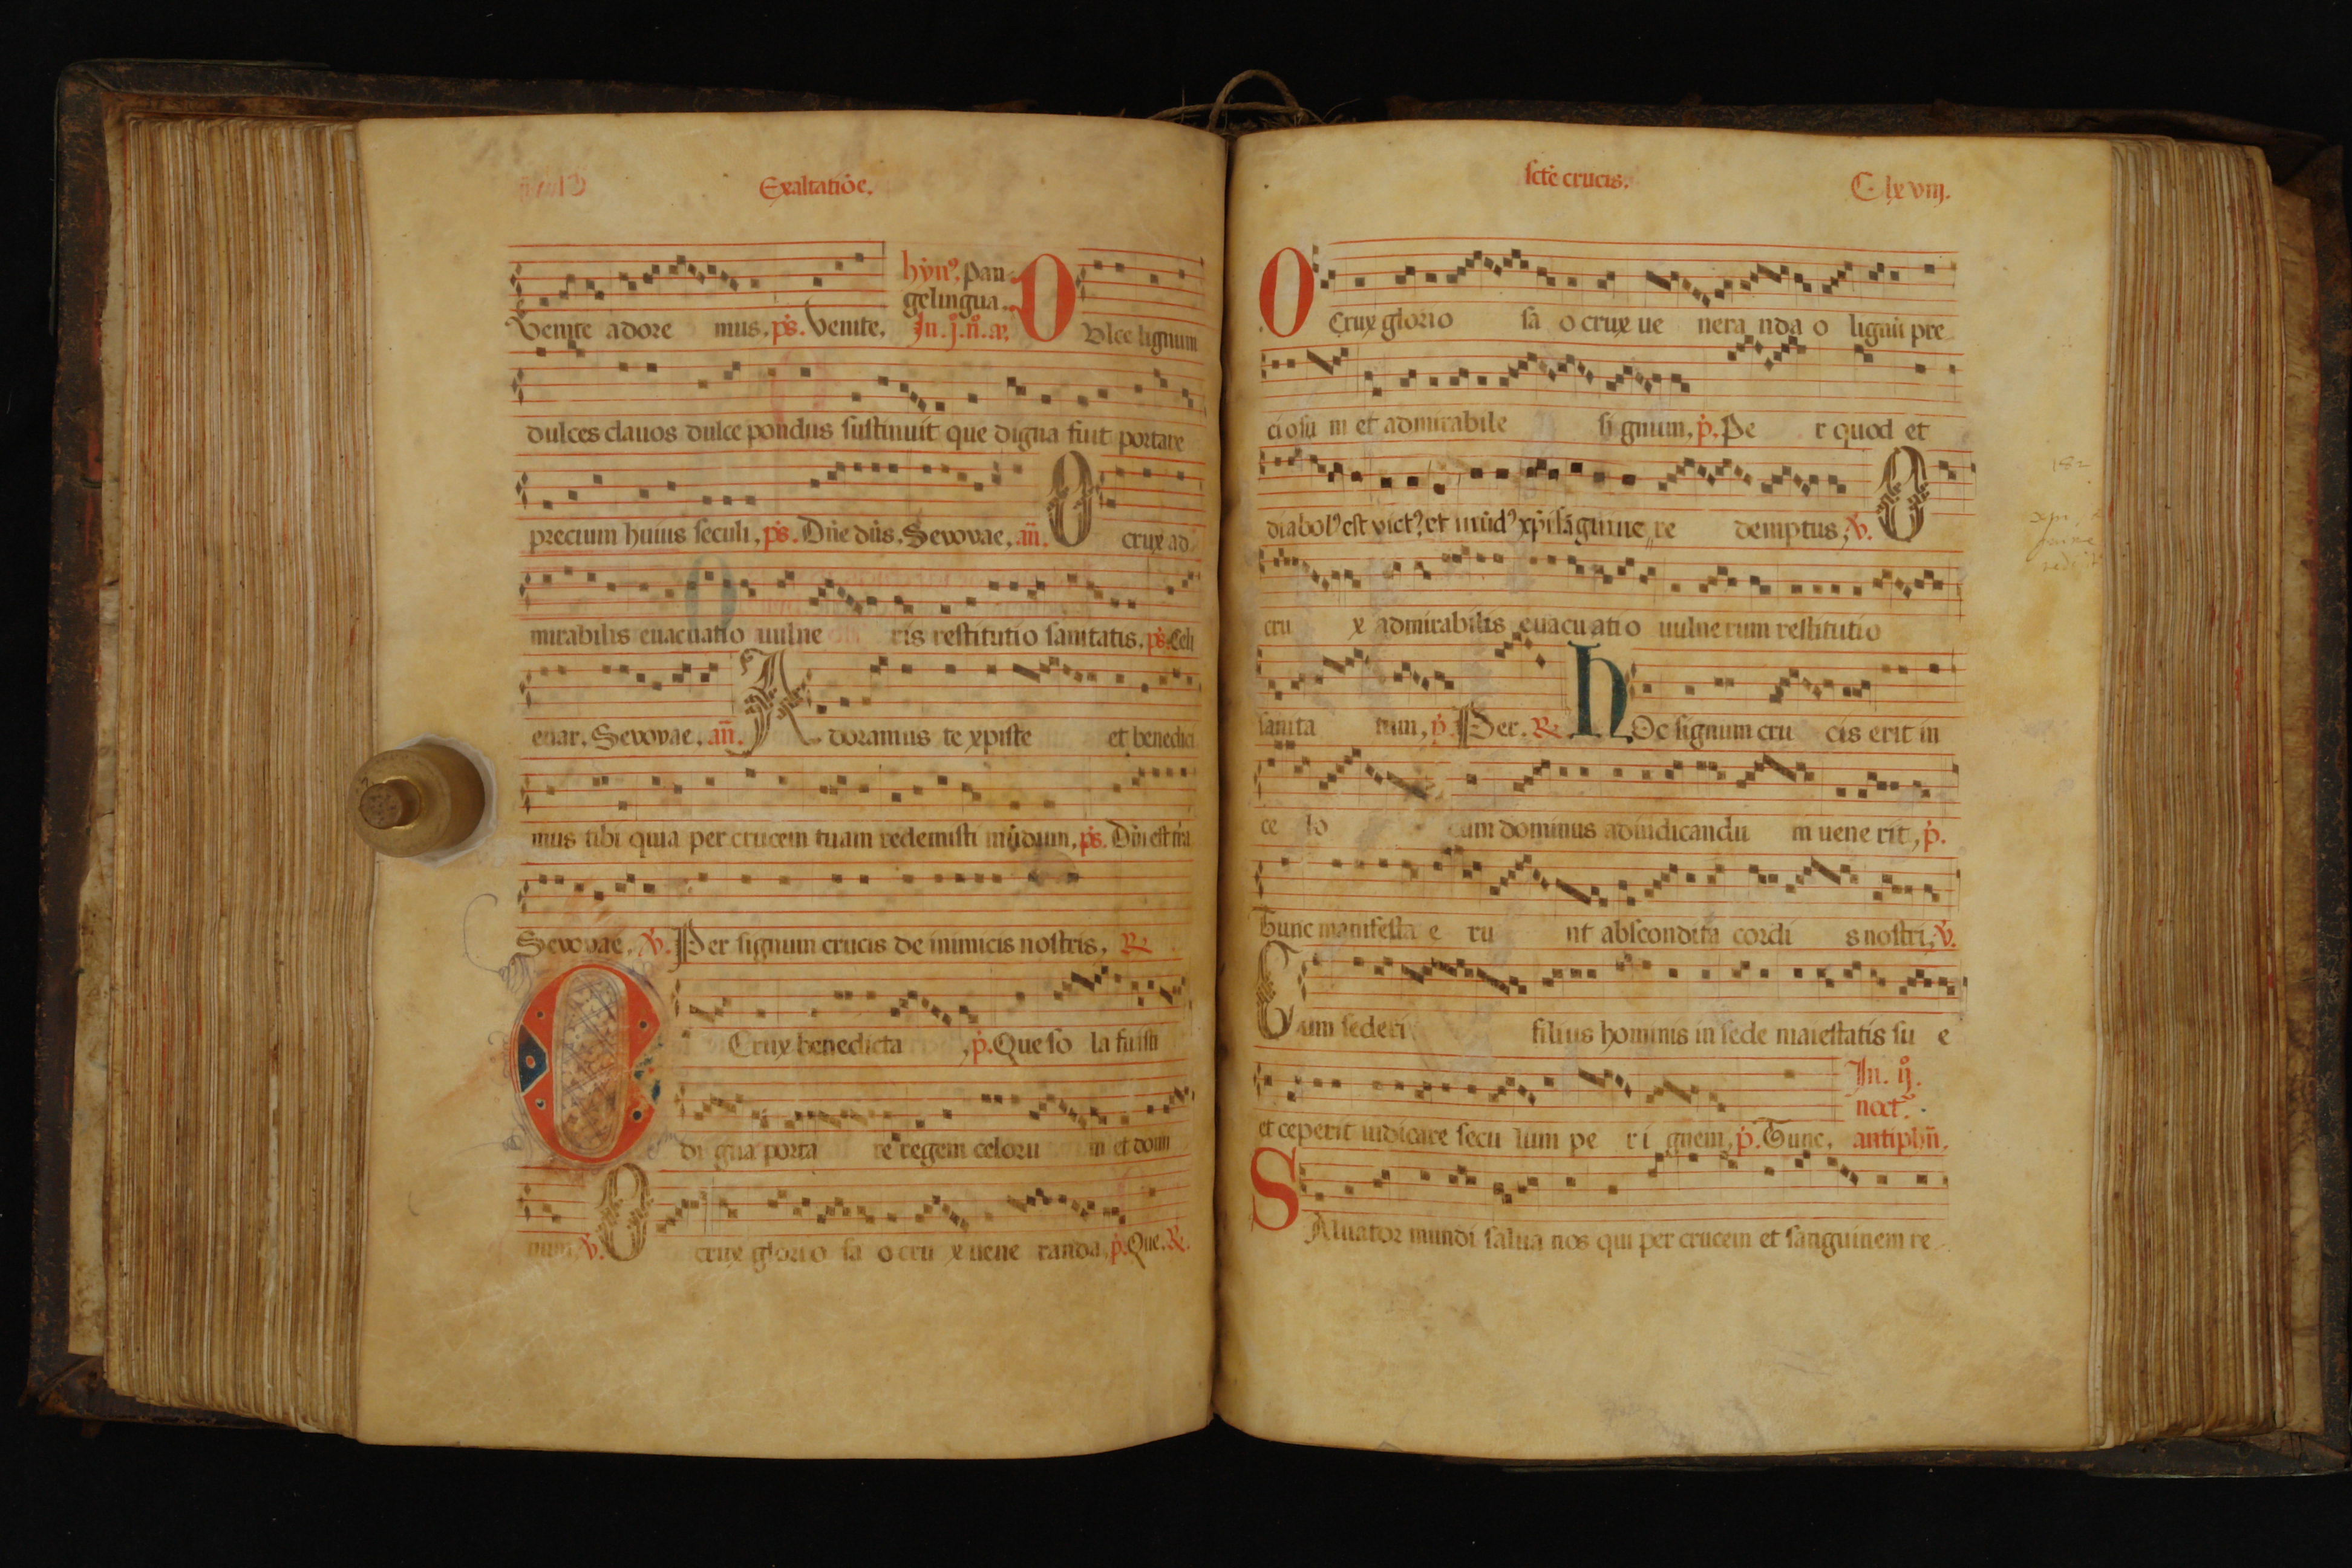 Exaltatiõe,
hỹnꝰ, Pan-
gelingua.
Venite adore mus. ps̃. Venite, In. j. n̊. añ. O Vlce lignum
dulces clauos dulce pondus sustinuit que digna fuit portare
precium huius seculi, ps̃. Dñe dñs. Sevovae, añ. O crux ad
mirabilis euacuatio uulne ris restitutio sanitatis. ps̃. Celi
enar. Sevovae, añ. A doramus te xpiste et benedici
mus tibi quia per crucem tuam redemisti mũdum, ps̃. Dñi est tr̃a
Sevovae, v̇. Per signum crucis de inimicis nostris, R
O Crux benedicta, p̃. Que so la fuisti
di gna porta re regem celoru m et domi
num, v̇. O crux glorio sa o cru x uene randa, p̃. Que. R.
sct̃e crucis.
C lx viij.
O Crux glorio sa o crux ue nera nda o lignũ pre
ciosu m et admirabile si gnum, p̃. Pe r quod et
diabolꝰ est victꝰ, et mũdꝰ xp̃i sãguine re demptus, v̇. O
cru x admirabilis euacu atio uulnerum restitutio
sanita tum, p̃. Per. R H Oc signum cru cis erit in
ce lo cum dominus adiudicandu m uene rit, p̃.
Tunc manifesta e ru nt abscondita cordi s nostri, v̇.
Cum sederi filius hominis in sede maiestatis su e
In. ij.
noct.
et ceperit iudicare secu lum pe r i gnem, p̃. Tunc, antiphñ.
S Aluator mundi salua nos qui per crucem et sanguinem re
182